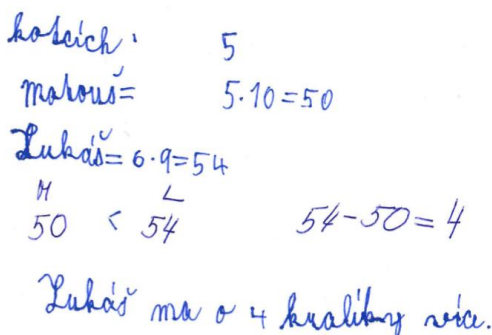 kotcích. 5
matouš= 5·10=50
Lukáš=6·9=54
M L
50 < 54 54-50=4
Lukáš ma o 4 kralíky více.